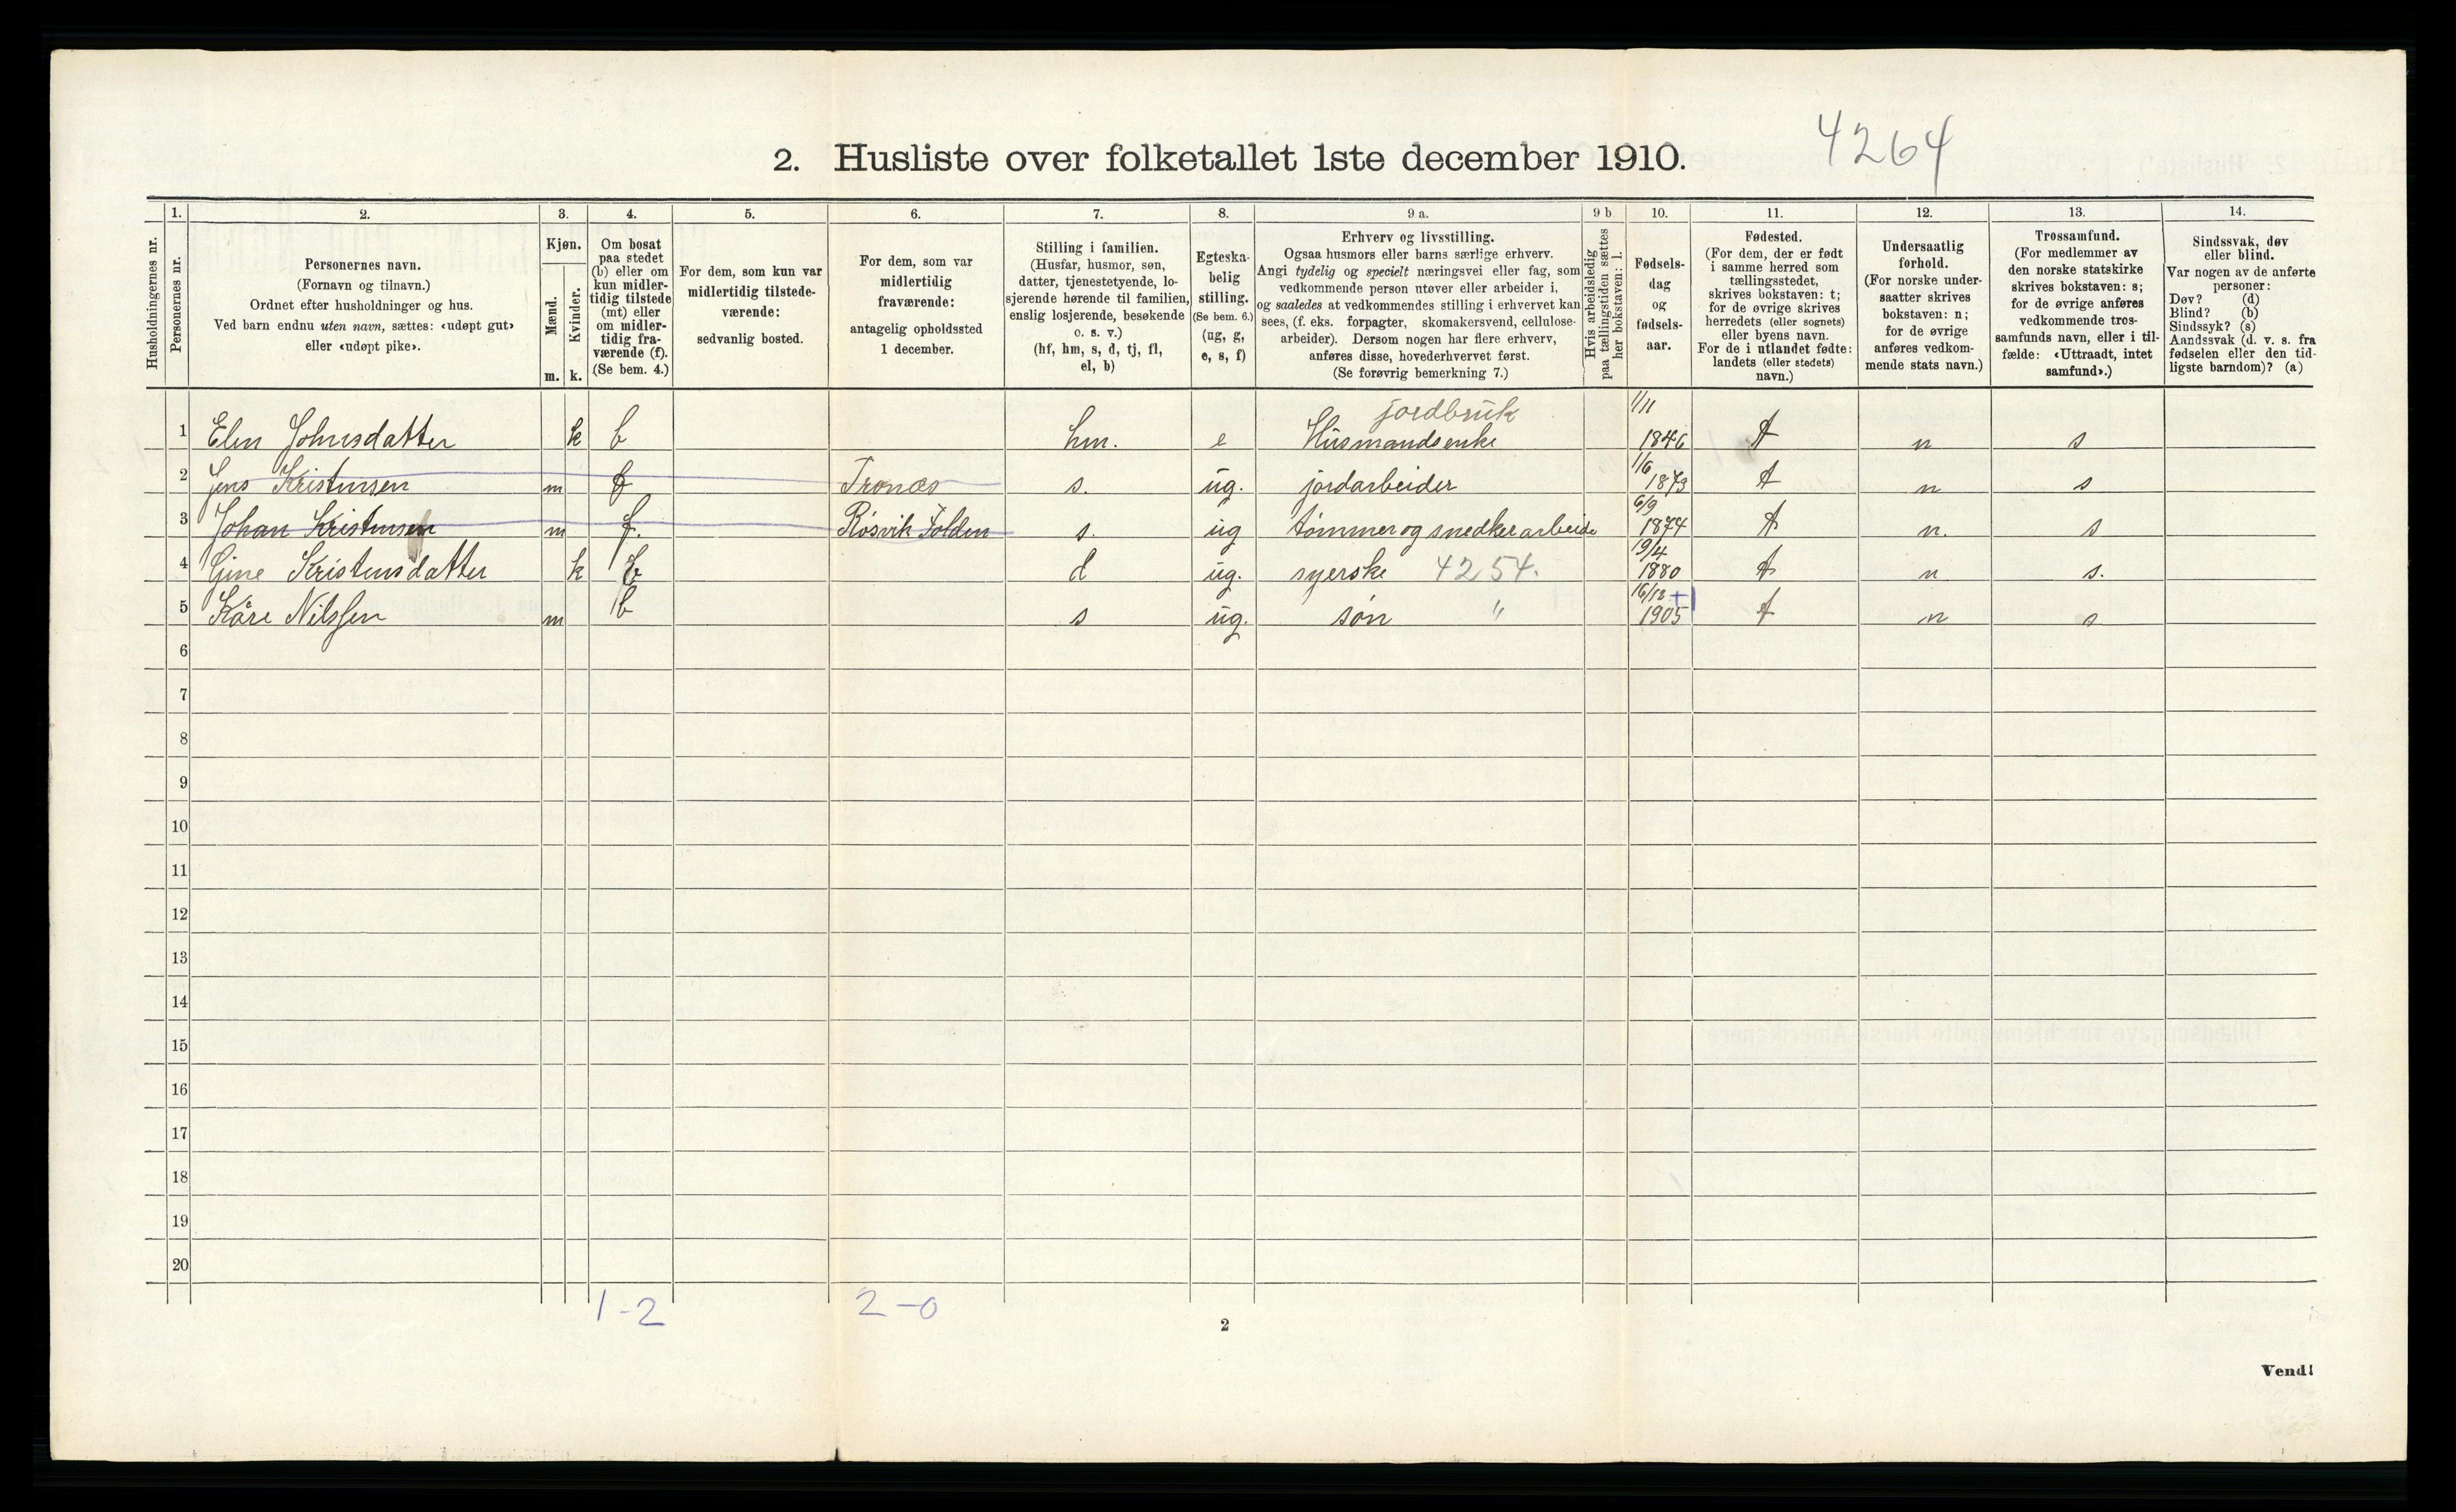 4264
2. Husliste over folketallet 1ste december 1910.
Husholdningernes nr.
1.
Personernes nr.
2.
Personernes navn.
(Fornavn og tilnavn.)
Ordnet efter husholdninger og hus.
Ved barn endnu uten navn, sættes: «udøpt gut»
eller «udøpt pike».
3.
Kjøn.
Mænd.
Kvinder.
m. k.
4.
Om bosat
paa stedet
(b) eller om
kun midler-
tidig tilstede
(mt) eller
om midler-
tidig fra-
værende (f).
(Se bem. 4.)
5.
For dem, som kun var
midlertidig tilstede-
værende:
sedvanlig bosted.
6.
For dem, som var
midlertidig
fraværende:
antagelig opholdssted
1 december.
7.
Stilling i familien.
(Husfar, husmor, søn,
datter, tjenestetyende, lo-
sjerende hørende til familien,
enslig losjerende, besøkende
o. s. v.)
(hf, hm, s, d, tj, fl,
el, b)
8.
Egteska-
belig
stilling.
(Se bem. 6.)
(ug, g,
e, s, f)
9 a.
Erhverv og livsstilling.
Ogsaa husmors eller barns særlige erhverv.
Angi tydelig og specielt næringsvei eller fag, som
vedkommende person utøver eller arbeider i,
og saaledes at vedkommendes stilling i erhvervet kan
sees, (f. eks. forpagter, skomakersvend, cellulose-
arbeider). Dersom nogen har flere erhverv,
anføres disse, hovederhvervet først.
(Se forøvrig bemerkning 7.)
9 b
Hvis arbeidsledig
paa tællingstiden sættes
her bokstaven: l.
10.
Fødsels-
dag
og
fødsels-
aar.
11.
Fødested.
(For dem, der er født
i samme herred som
tællingsstedet,
skrives bokstaven: t;
for de øvrige skrives
herredets (eller sognets)
eller byens navn.
For de i utlandet fødte:
landets (eller stedets)
navn.)
12.
Undersaatlig
forhold.
(For norske under-
saatter skrives
bokstaven: n;
for de øvrige
anføres vedkom-
mende stats navn.)
13.
Trossamfund.
(For medlemmer av
den norske statskirke
skrives bokstaven: s;
for de øvrige anføres
vedkommende tros-
samfunds navn, eller i til-
fælde: «Uttraadt, intet
samfund».)
14.
Sindssvak, døv
eller blind.
Var nogen av de anførte
personer:
Døv? (d)
Blind? (b)
Sindssyk? (s)
Aandssvak (d. v. s. fra
fødselen eller den tid-
ligste barndom)? (a)
jordbruk 1/11
1 Elen Johnsdatter k b hm. e Husmandsenke 1846 t n s
2 Jens Kristensen m f Tronæs s. ug. jordarbeider 1/6 1873 t n s
3 Johan Kristensen m f. Røsvik Folden s. ug tømmer og snedkerarbeide 6/9 1874 t n. s
4 Gine Kristensdatter k b d ug. syerske 4254. 19/4 1880 t n s.
5 Kåre Nilssen m b s ug. søn " 16/12 +1 1905 t n s
6
7
8
9
10
11
12
13
14
15
16
17
18
19
20
1-2 2-0
2
Vend!